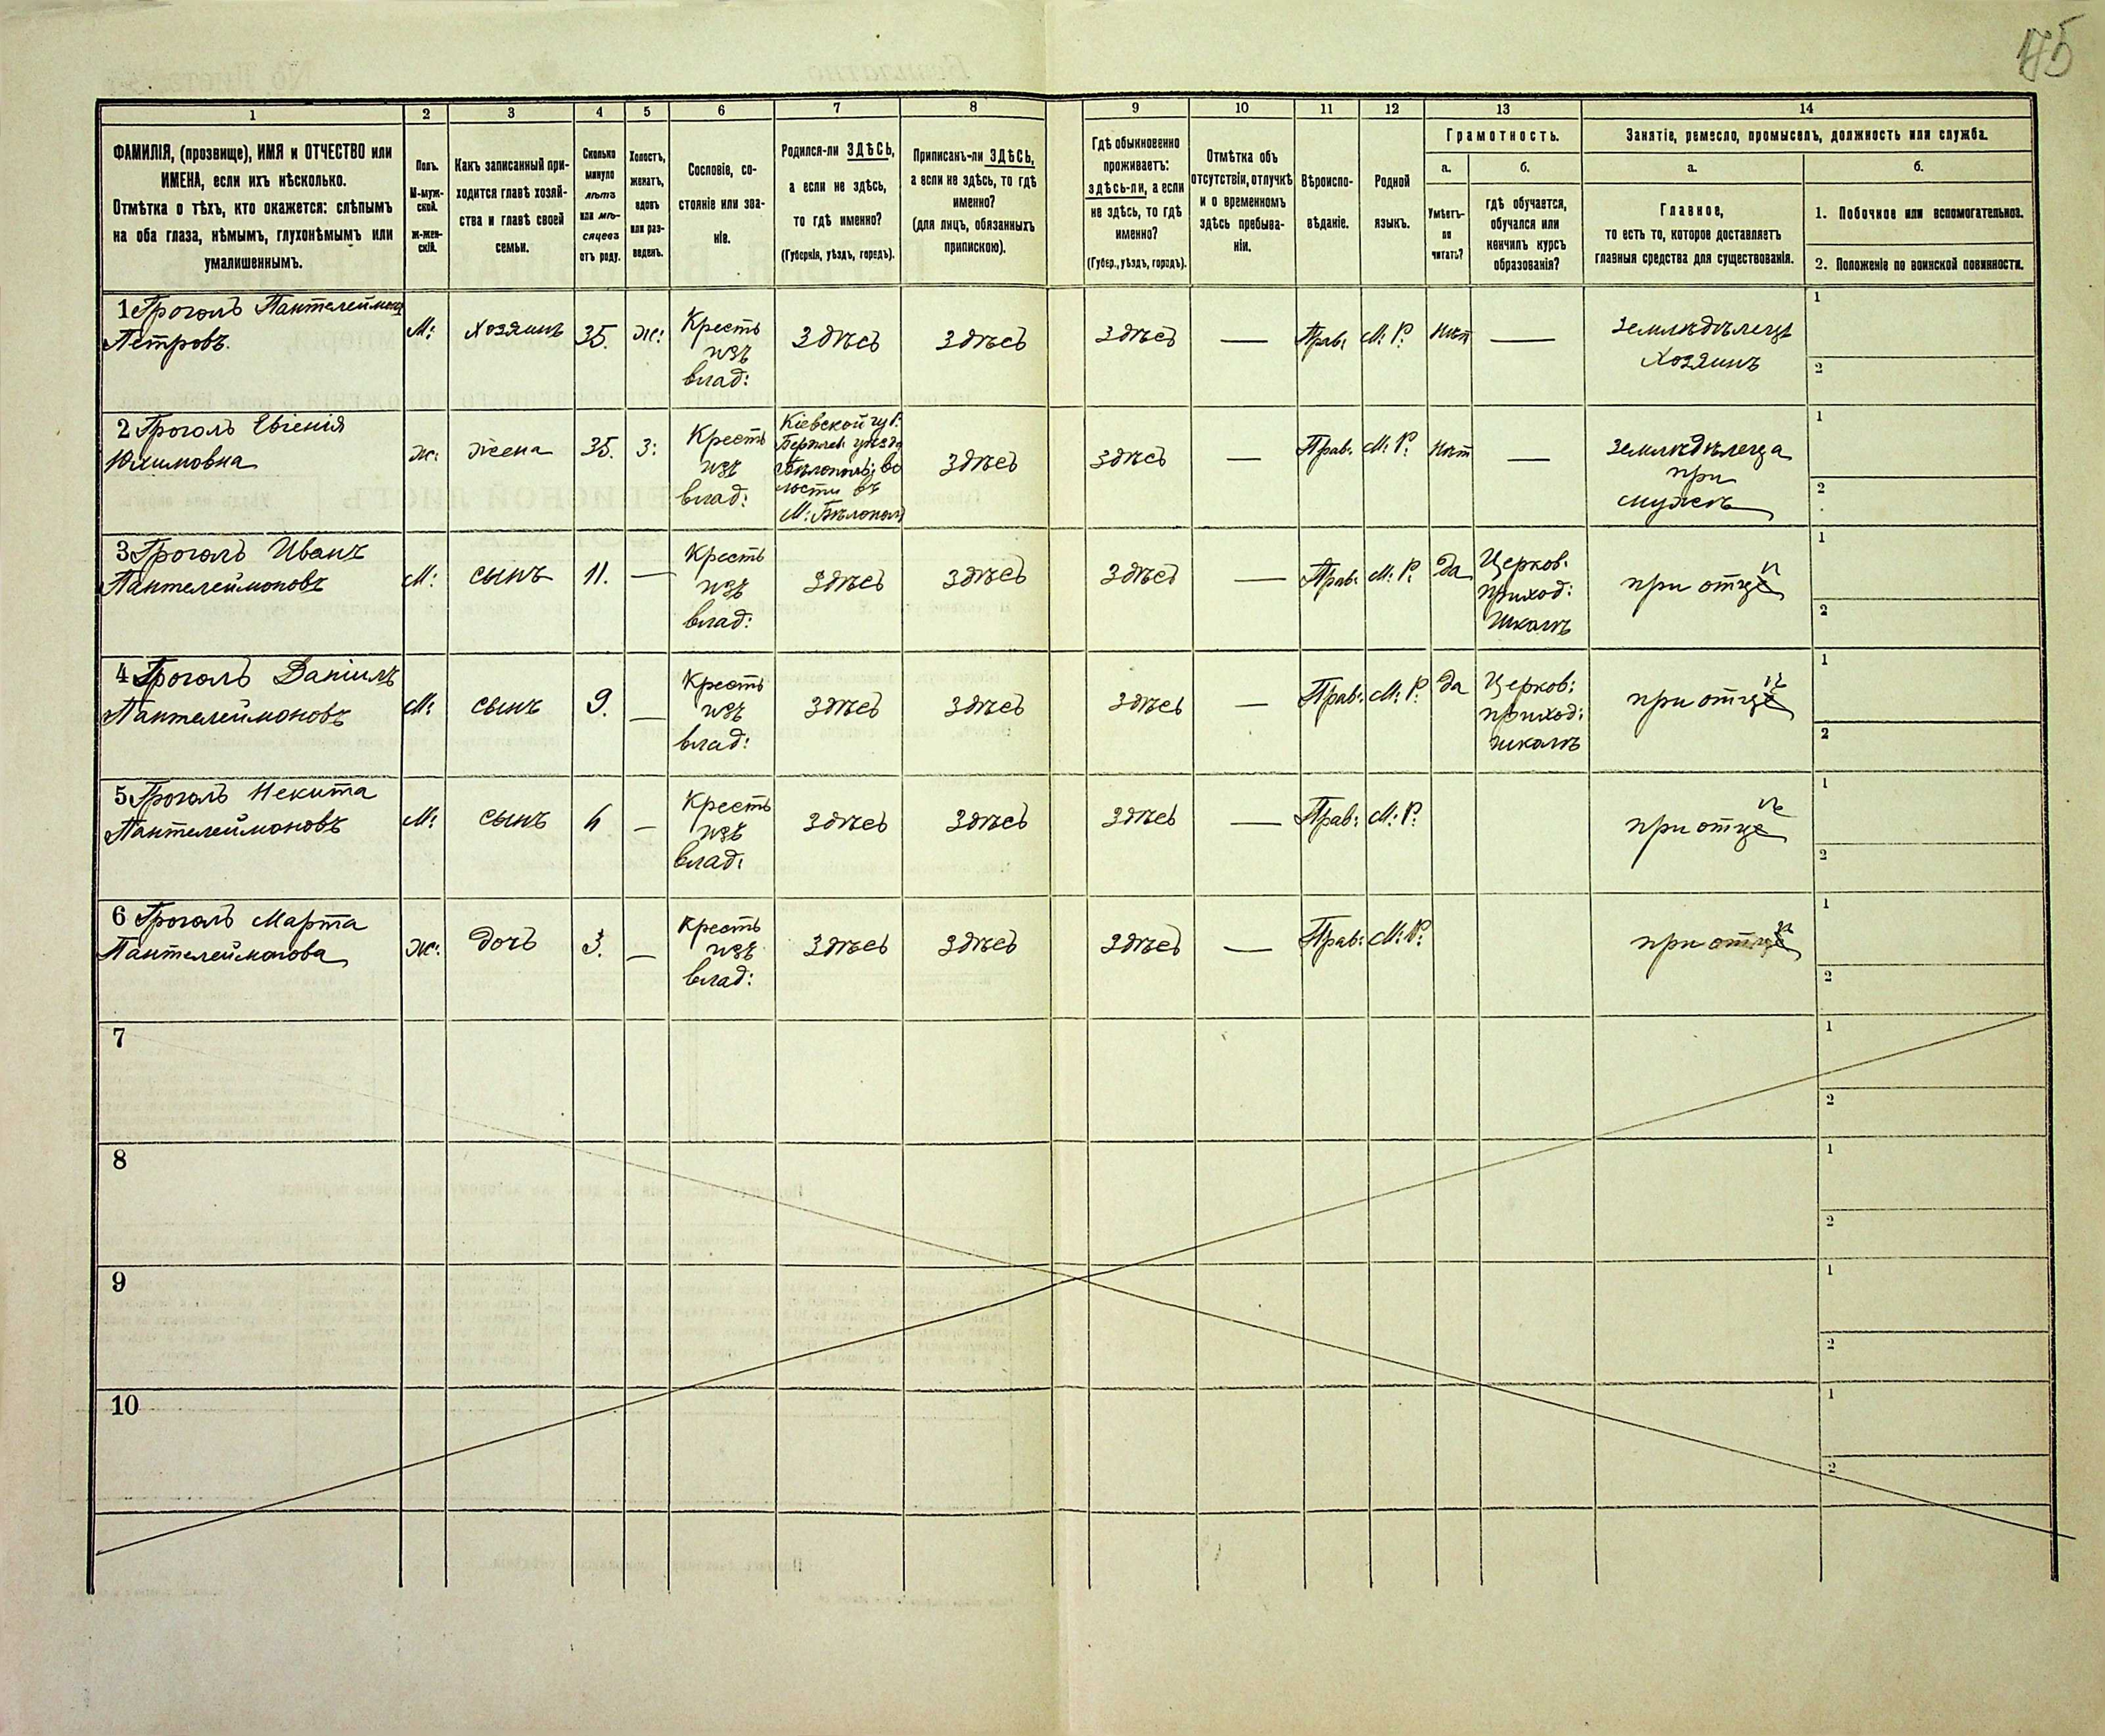 175
1
2
3
4
5
6
7
8
9
10
11
12
13
14
ФАМИЛІЯ, (прозвище), ИМЯ и ОТЧЕСТВО или
ИМЕНА, если ихъ нѣсколько.
Отмѣтка о тѣхъ, кто окажется: слѣпымъ
на оба глаза, нѣмымъ, глухонѣмымъ или
умалишеннымъ.
Полъ.
М-муж-
ской.
ж-жен-
скій.
Какъ записанный при-
ходится главѣ хозяй-
ства и главѣ своей
семьи.
Сколько
минуло
лѣтъ
или мѣ-
сяцевъ
отъ роду.
Холостъ,
женатъ,
вдовъ
или раз-
веденъ.
Сословіе, со-
стояніе или зва-
ніе.
Родился-ли ЗДѢСЬ,
а если не здѣсь,
то гдѣ именно?
(Губернія, уѣздъ, городъ).
Приписанъ-ли ЗДѢСЬ,
а если не здѣсь, то гдѣ
именно?
(для лицъ, обязанныхъ
припискою).
Гдѣ обыкновенно
проживаетъ:
здѣсь-ли, а если
не здѣсь, то гдѣ
именно?
(Губер., уѣздъ, городъ).
Отмѣтка объ
отсутствіи, отлучкѣ
и о временномъ
здѣсь пребыва-
ніи.
Вѣроиспо-
вѣданіе.
Родной
языкъ.
Грамотность.
а.
Умѣетъ-
ли
читать?
б.
гдѣ обучается,
обучался или
кончилъ курсъ
образованія?
Занятіе, ремесло, промыселъ, должность или служба.
а.
Главное,
то есть то, которое доставляетъ
главныя средства для существованія.
б.
1. Побочное или вспомогательное.
2. Положеніе по воинской повинности.
1 Гроголь Пантелеймонъ
Петровъ.
М:
Хозяинъ
35.
Ж:
Кресть
изъ
влад:
Здѣсь
Здѣсь
Здѣсь
—
Прав:
М: Р:
Нѣт
—
Земледѣлецъ
Хозяинъ
1
2
2 Гроголь Евгенія
Юхимовна
ж:
жена
35.
З:
Кресть
изъ
влад:
Кіевской губ:
Бердичев: уѣзда
Бѣлополь: во
лости въ
М: Бѣлополь
Здѣсь
Здѣсь
—
Прав:
М: Р:
Нѣт
—
Земледѣлеца
при
мужѣ
1
2
3 Гроголь Иванъ
Пантелеймоновъ
М:
сынъ
11.
—
Кресть
изъ
влад:
Здѣсь
Здѣсь
Здѣсь
—
Прав:
М: Р:
Да
Церков:
приход:
школѣ
при отцѣ
1
2
4 Гроголь Даніилъ
Пантелеймоновъ
М:
сынъ
9.
—
Кресть
изъ
влад:
Здѣсь
Здѣсь
Здѣсь
—
Прав:
М: Р:
Да
Церков:
приход:
школѣ
при отцѣ
1
2
5 Гроголь Некита
Пантелеймоновъ
М:
сынъ
—
Кресть
изъ
влад:
Здѣсь
Здѣсь
Здѣсь
—
Прав:
М: Р:
при отцѣ
1
2
6 Гроголь Марта
Пантелеймонова
ж:
дочь
3.
—
Кресть
изъ
влад:
Здѣсь
Здѣсь
Здѣсь
—
Прав:
М: Р:
при отцѣ
1
2
7
1
2
8
1
2
9
1
2
10
1
2